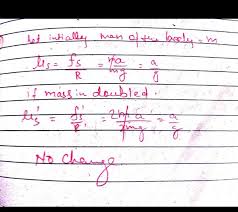 Let intially mass of the body = m
μs = fs/R = ma/mg = a/g
if mass in doubled.
μs' = fs'/R' = 2ma/2mg = a/g
No change